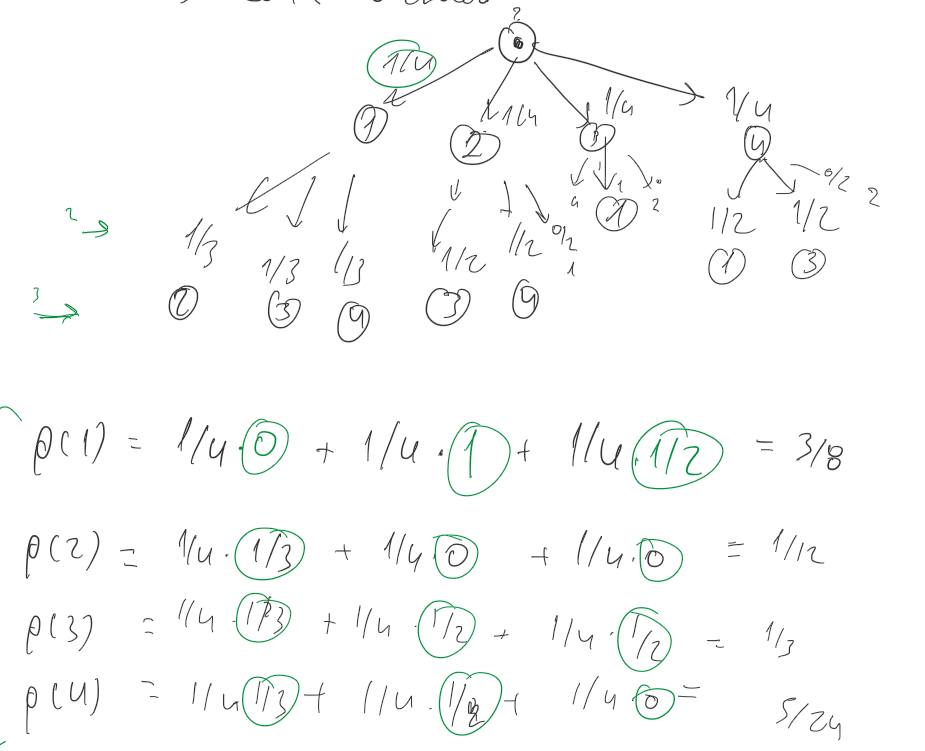 ?
0
1/4 1/4 1/4 1/4
1 2 3 4
4 1 1 0 2 0/2 2
2 → 1/3 1/3 1/3 1/2 1/2 0/2 1 1/2 1/2
3 → 2 3 4 3 4 1 3
p(1) = 1/4 · 0 + 1/4 · 1 + 1/4 · 1/2 = 3/8
p(2) = 1/4 · 1/3 + 1/4 · 0 + 1/4 · 0 = 1/12
p(3) = 1/4 · 1/3 + 1/4 · 1/2 + 1/4 · 1/2 = 1/3
p(4) = 1/4 1/3 + 1/4 · 1/2 + 1/4 · 0 = 5/24